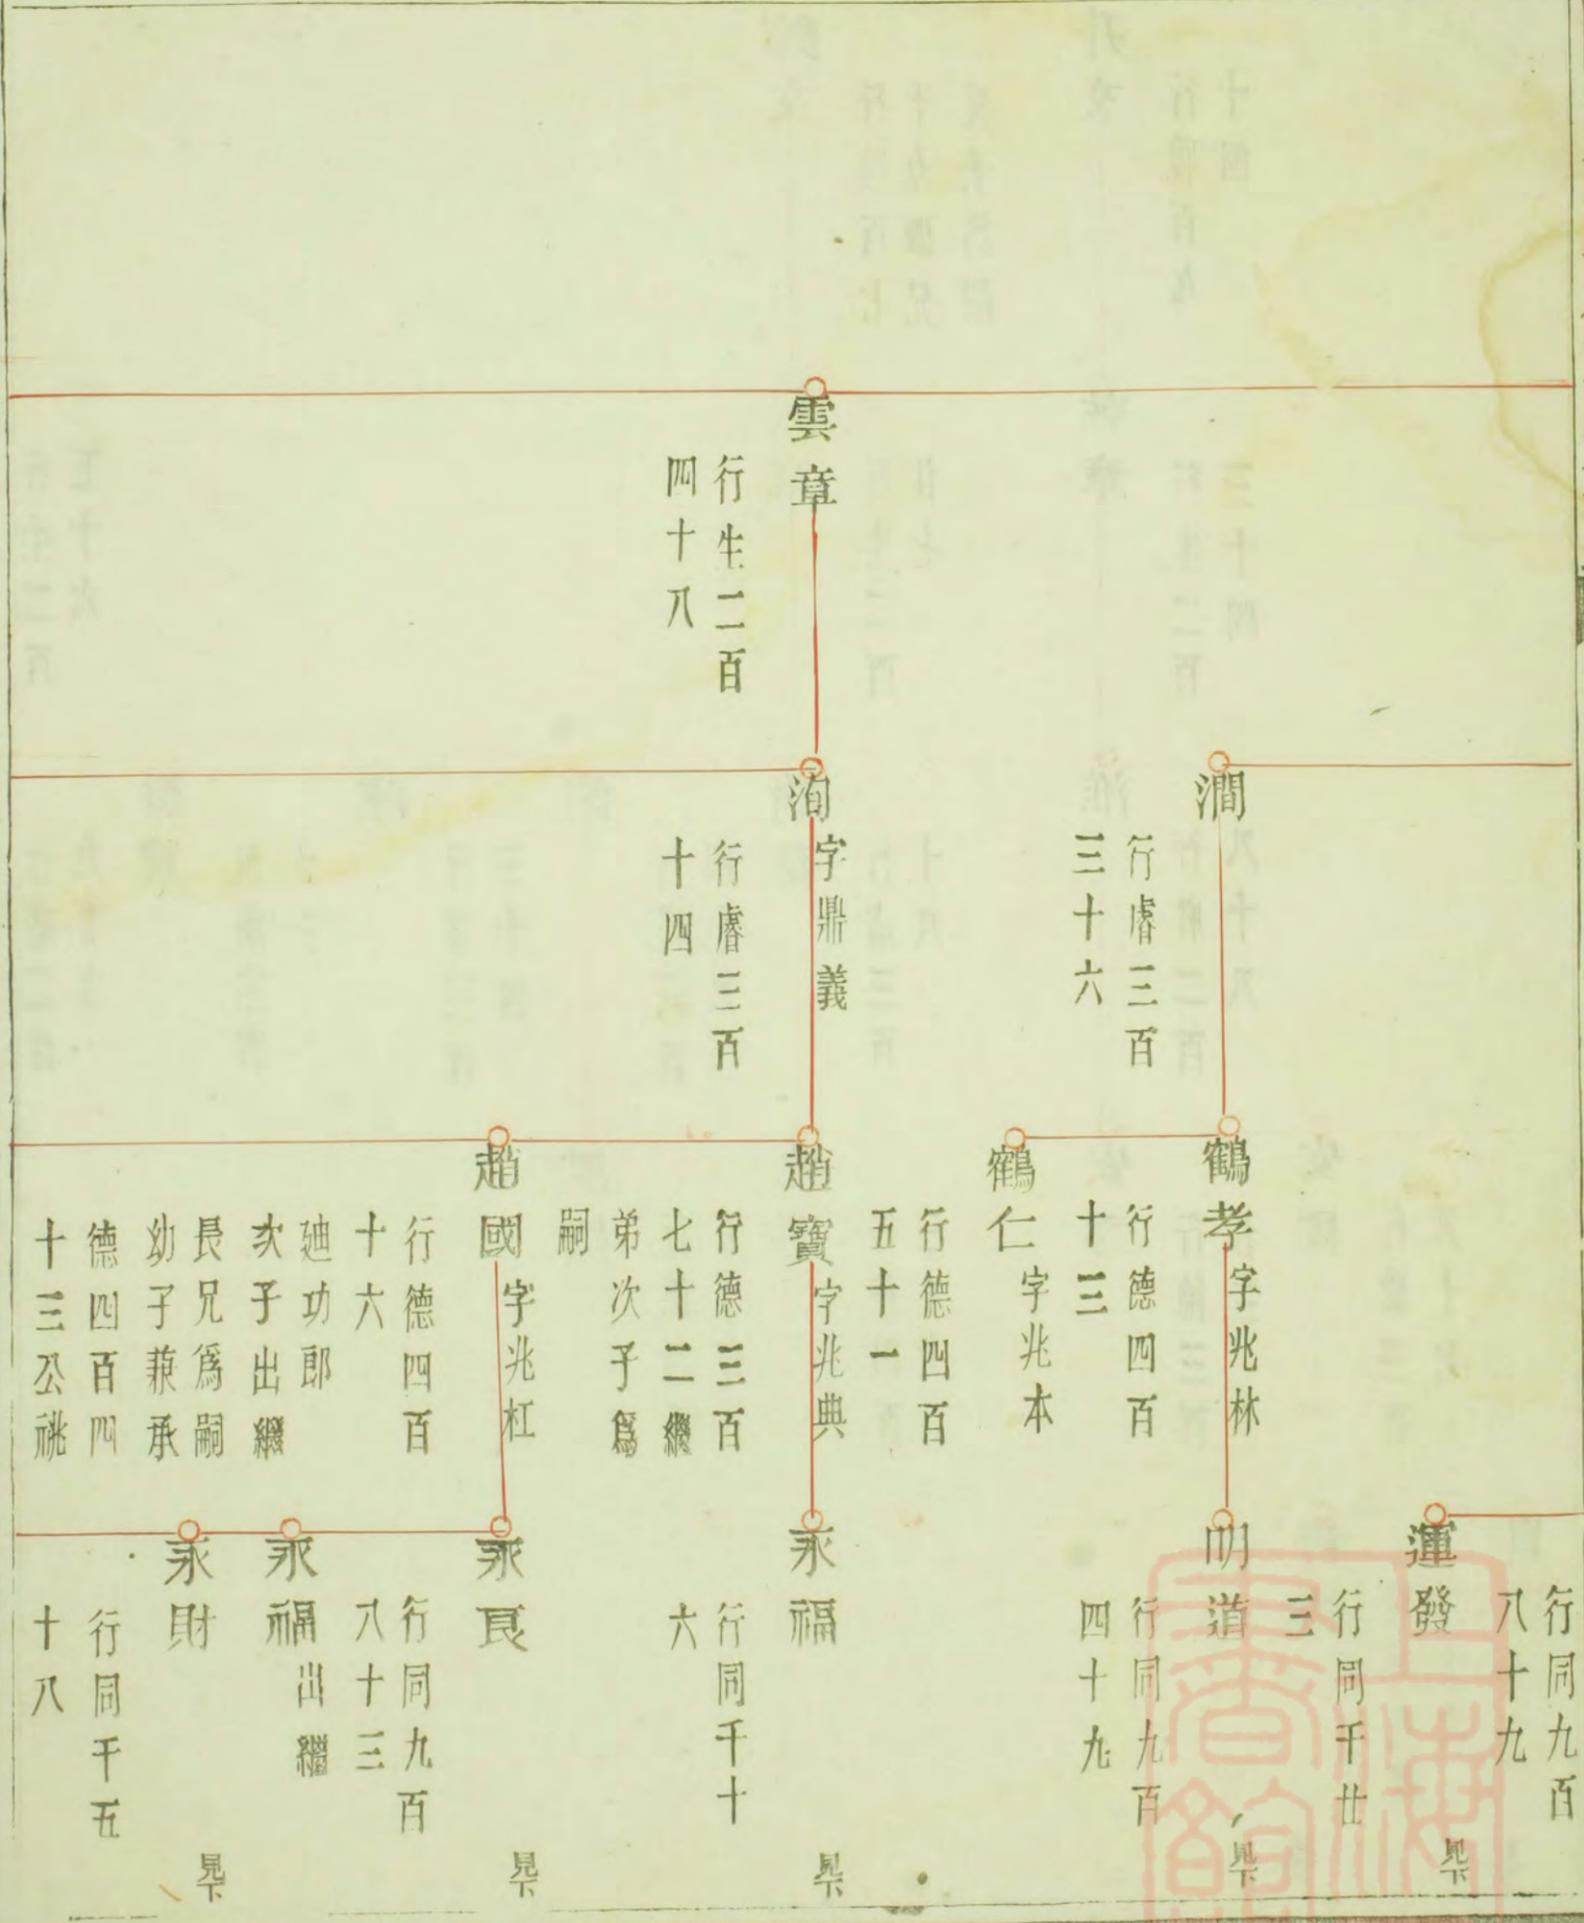 雲章
行生二百
四十八
澗
行睿三百
三十六
洵
字鼎義
行睿三百
十四
鶴孝
字兆林
行德四百
十三
鶴仁
字兆本
行德四百
五十一
趙寶
字兆典
行德三百
七十二繼
弟次子爲
嗣
趙國
字兆杠
行德四百
十六
迪功郎
次子出繼
長兄爲嗣
幼子蒹承
德四百四
十三公祧
行同九百
八十九
運發
行同千廿
三
見下
明道
行同九百
四十九
見下
永福
行同千十
六
見下
永良
行同九百
八十三
見下
永福
出繼
永財
行同千五
十八
見下
上海
圖書館